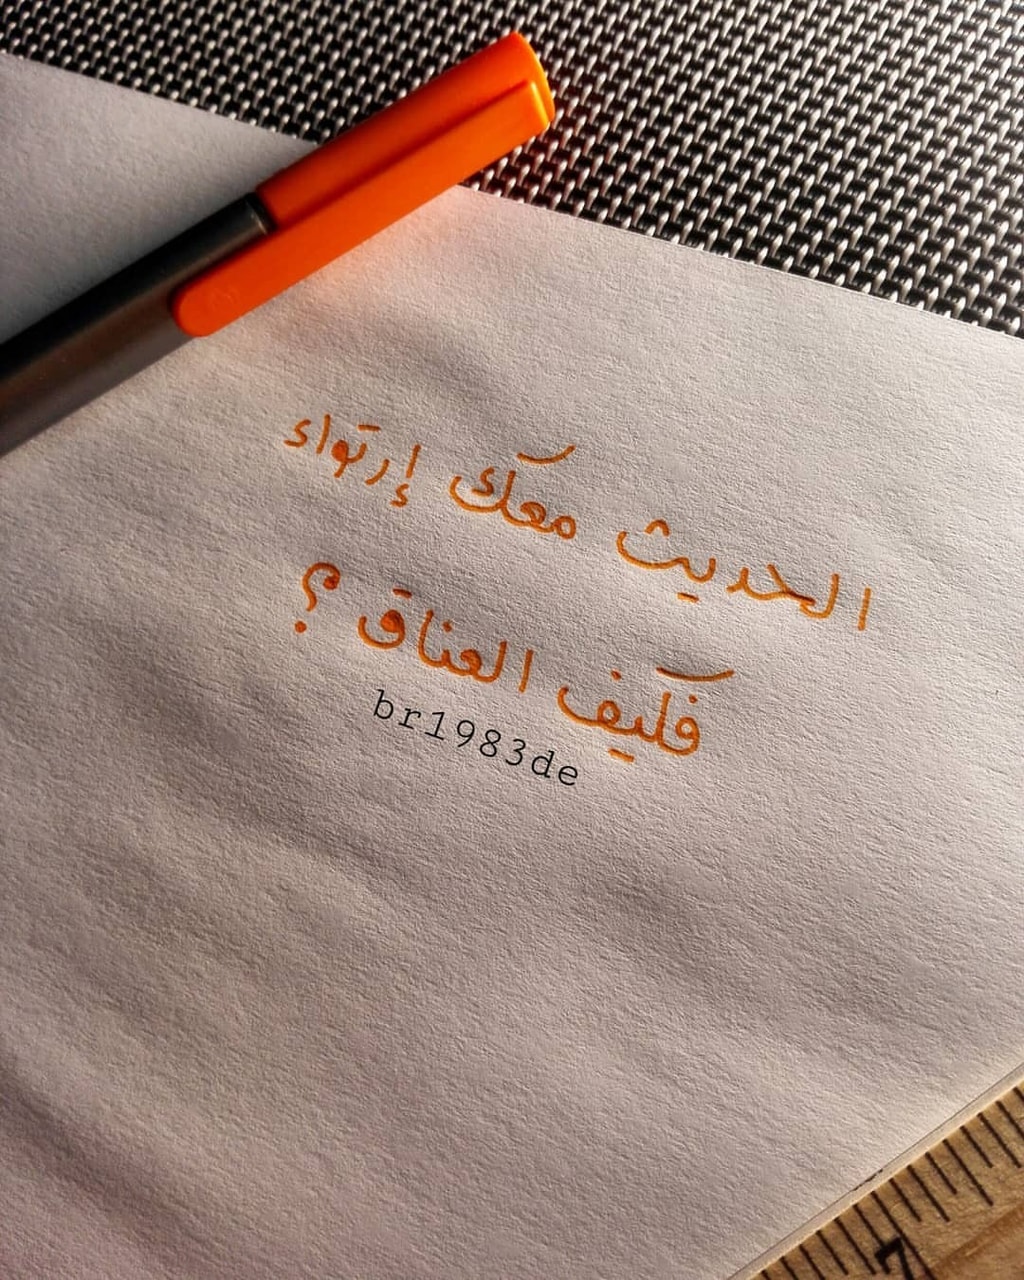 الحديث معك إرتواء
فكيف العناق ؟
br1983de
7